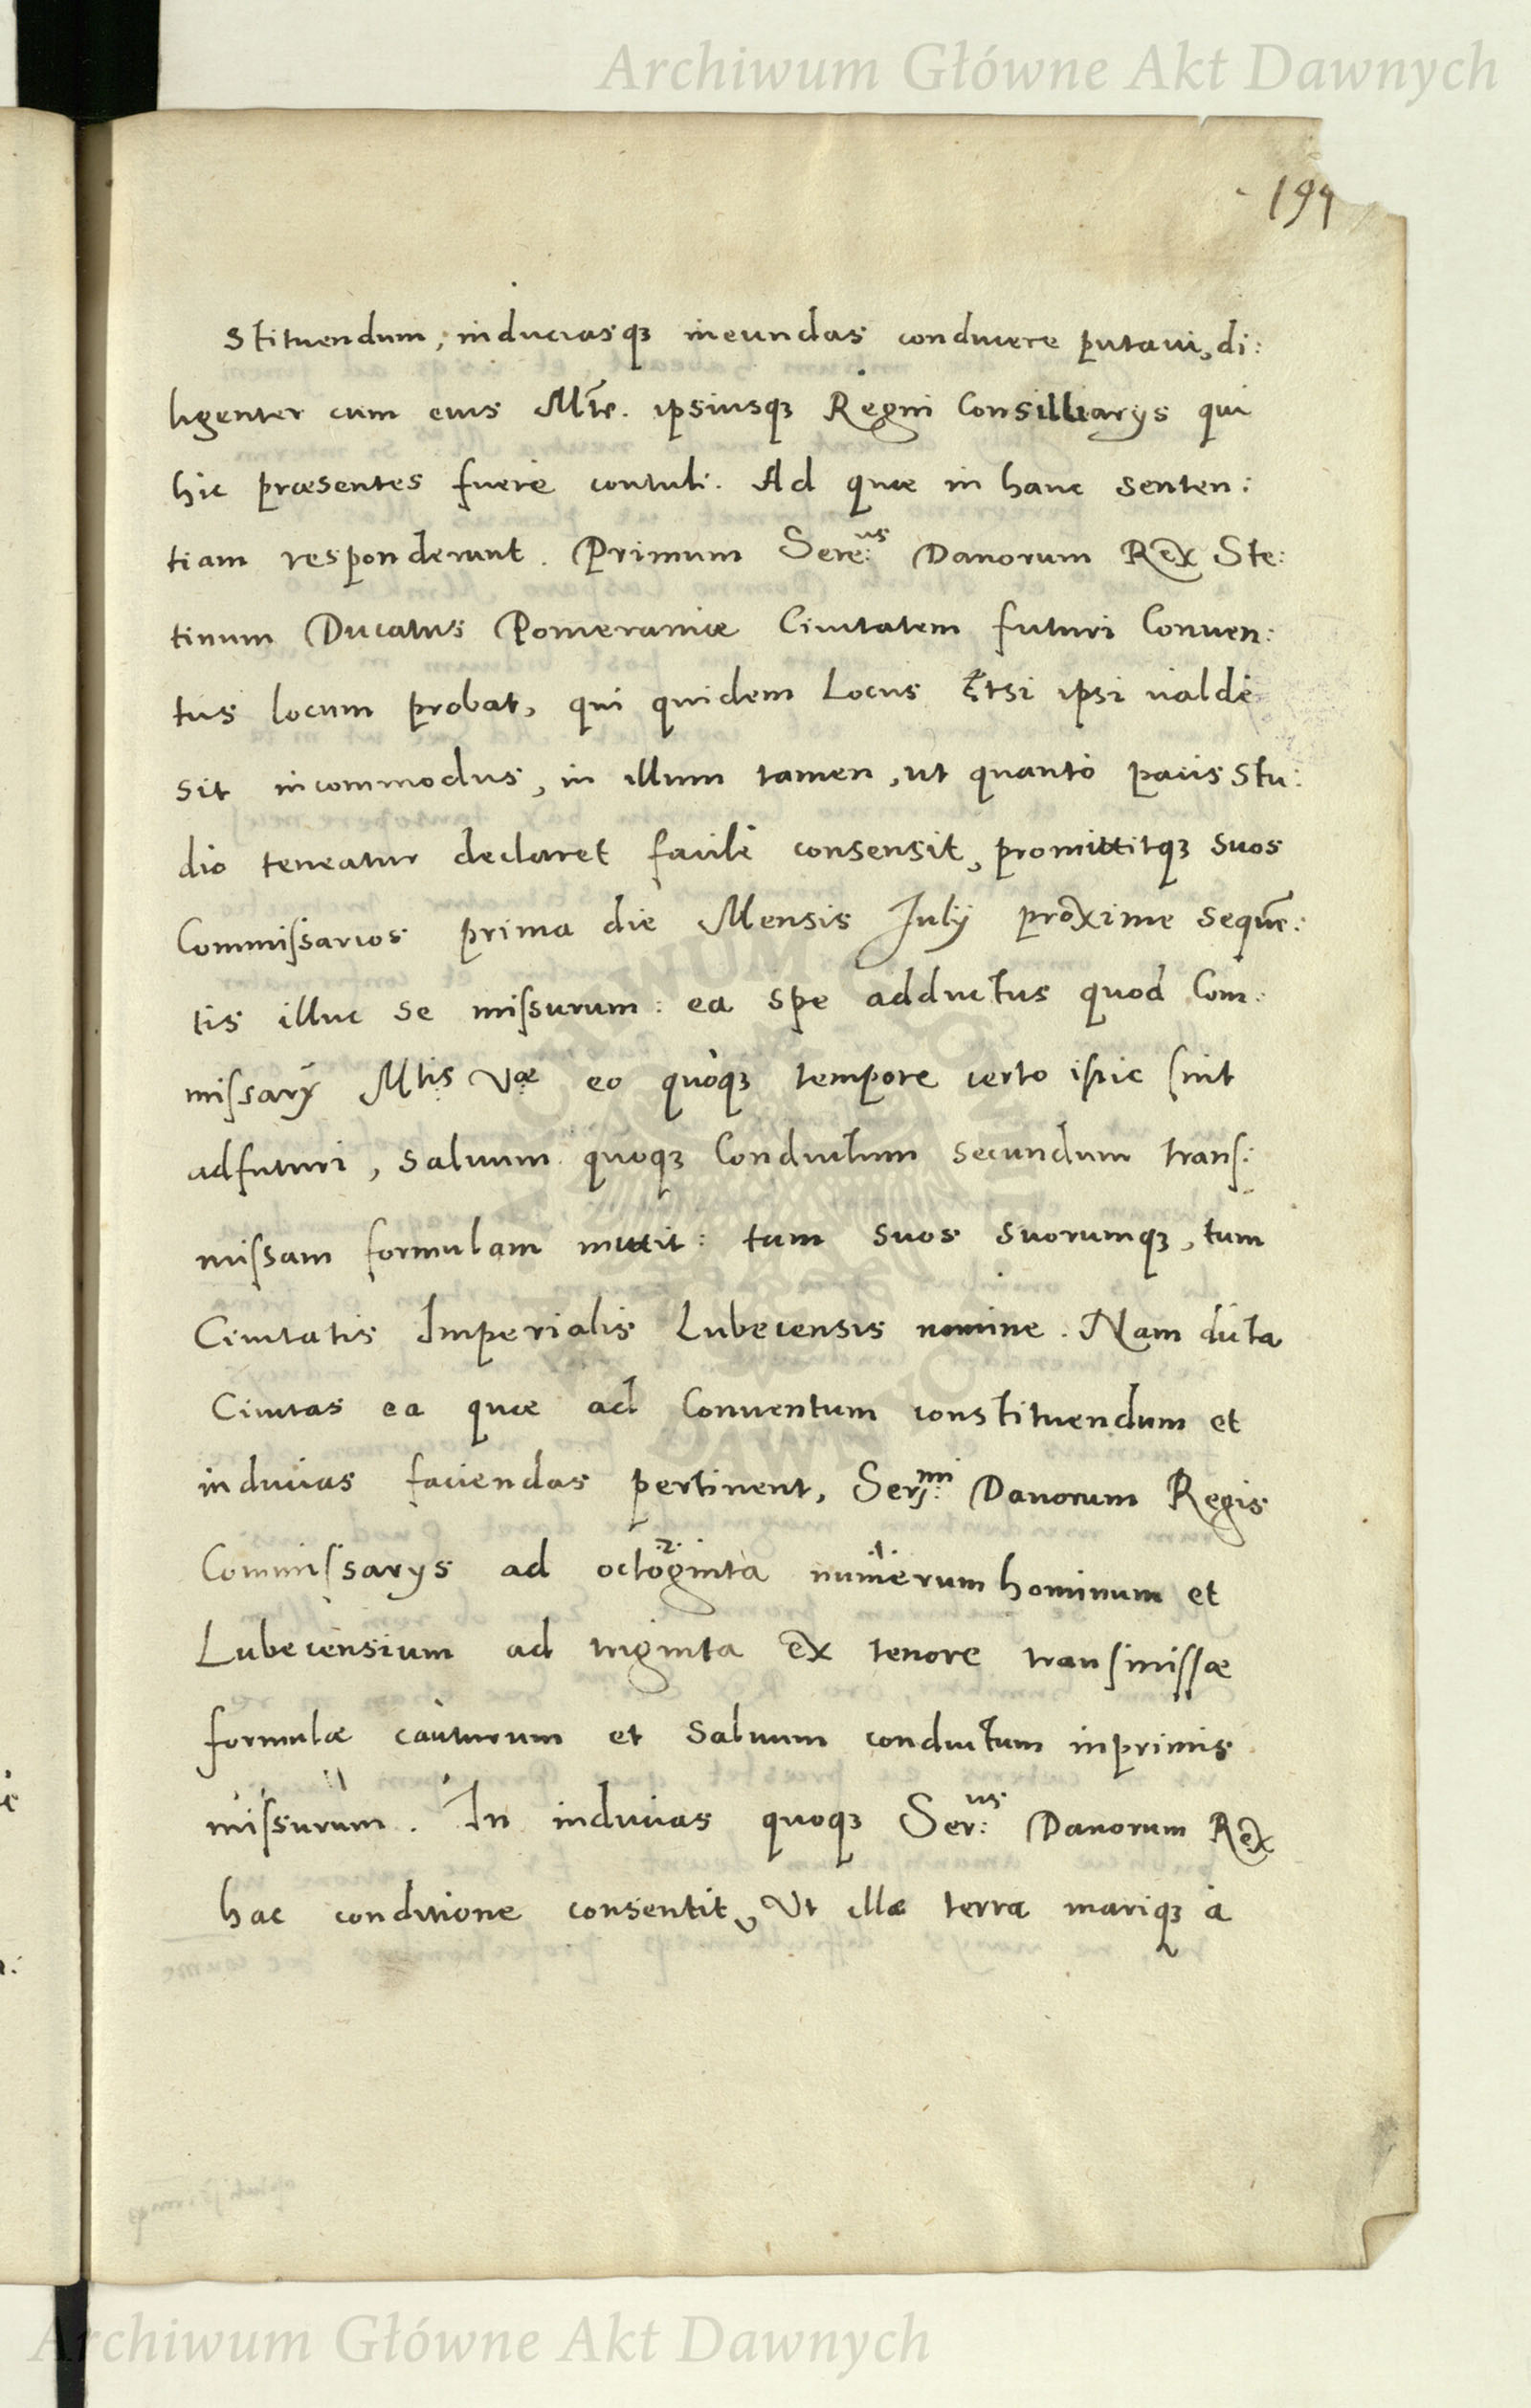 Archiwum Główne Akt Dawnych
199
stituendum, induciasqꝫ ineundas conducere putaui, di:
ligenter cum eius Mte. ipsiusqꝫ Regni Consilliarÿs qui
hic præsentes fuere contuli. Ad quæ in hanc senten:
tiam responderunt. Primum Sere:us Danorum Rex Ste:
tinum Ducatus Pomeraniæ Ciuitatem futuri Conuen:
tus locum probat, qui quidem Locus Etsi ipsi ualde
sit incommodus, in illum tamen, ut quanto pacis stu:
dio teneatur declaret facile consensit, promittitqꝫ suos
Commissarios prima die Mensis Julÿ proxime sequen:
tis illuc se missurum: ea spe adductus quod Com:
missarÿ Mtis Væ eo quoqꝫ tempore certo istic sint
adfuturi, saluum quoqꝫ Conductum secundum trans:
missam formulam mittit: tum suos suorumqꝫ, tum
Ciuitatis Imperialis Lubecensis nomine. Nam dicta
Ciuitas ea quæ ad Conuentum constituendum et
inducias faciendas pertinent, Ser:mi Danorum Regis
Commissarÿs ad octoginta .2. numerum .1. hominum et
Lubecensium ad triginta ex tenore transmissæ
formulæ cauturum et saluum conductum inprimis
missurum. In inducias quoqꝫ Ser:us Danorum Rex
hac conditione consentit, Vt illæ terra mariqꝫ à
Archiwum Główne Akt Dawnych